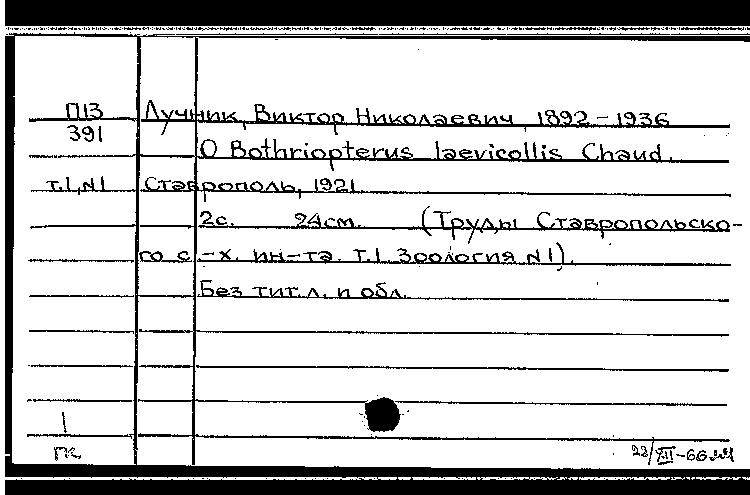 П13 Лучник, Виктор Николаевич, 1892-1936
391
О Bothriopterus laevicollis Chaud.
т.1, №1 Ставрополь, 1921.
2с. 24см. (Труды Ставропольско-
го с.-х. ин-та. т.1. Зоология №1).
Без тит.л. и обл.
1
23/XII-66